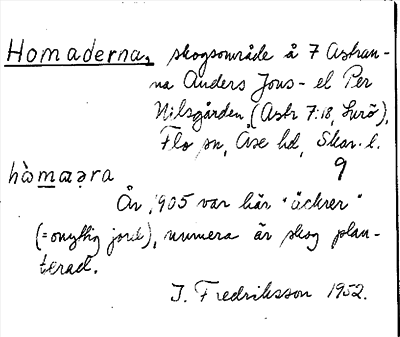 Homaderna, skogsområde å 7 Astran-
na Anders Jons- el Per
Nilsgården (Astr 7:18, Lurö),
Flo sn, Åse hd, Skar. l.
hòmaəra 9
År 1905 var här "äckrer"
(=onyttig jord), numera är skog plan-
terad.
J. Fredriksson 1952.